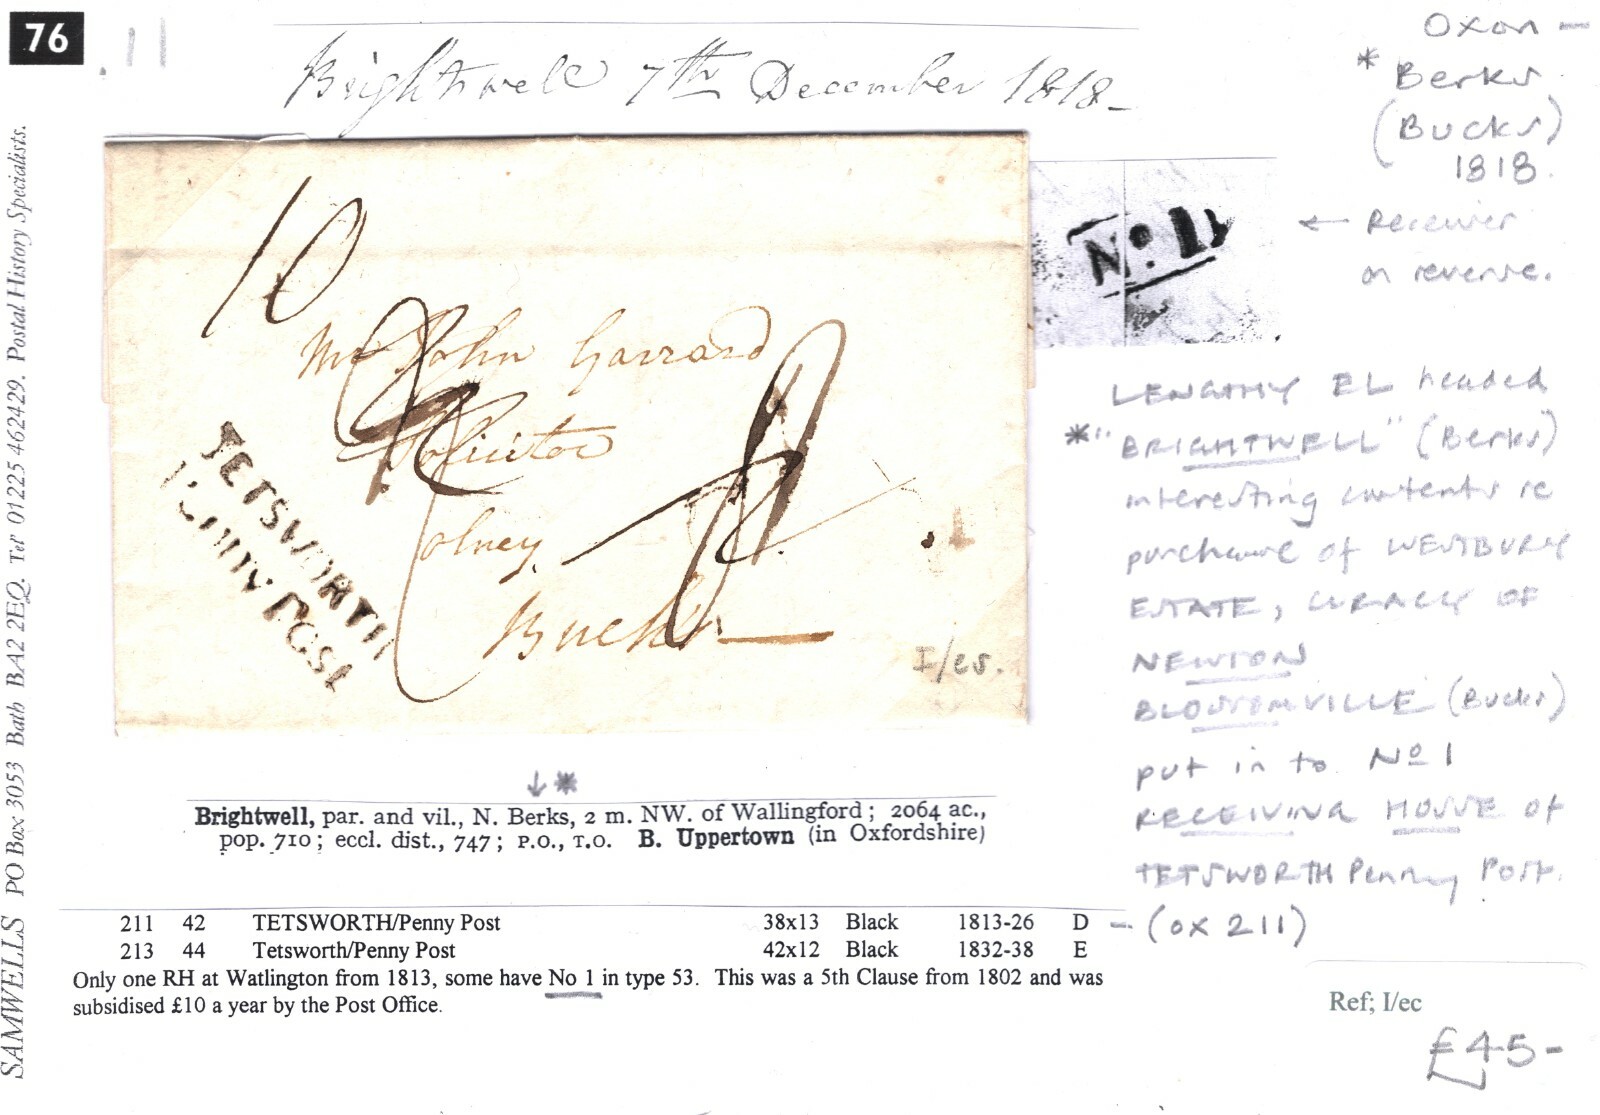 76
11
Brightwell 7th December 1818_
Oxon —
* Berks
(Bucks)
1818.
← Receiver
on reverse.
No. 1
10
Mr John Garrard
Solicitor
Olney,
Bucks
TETSWORTH
Penny Post
I/es.
LENGTHY EL headed
*"BRIGHTWELL" (Berks)
interesting contents re
purchase of WESTBURY
ESTATE, CURACY OF
NEWTON
BLOSSOMVILLE (Bucks)
put in to No 1
RECEIVING HOUSE of
TETSWORTH Penny Post.
– (OX 211)
↓*
Brightwell, par. and vil., N. Berks, 2 m. NW. of Wallingford; 2064 ac.,
pop. 710; eccl. dist., 747; P.O., T.O. B. Uppertown (in Oxfordshire)
211 42 TETSWORTH/Penny Post 38x13 Black 1813-26 D
213 44 Tetsworth/Penny Post 42x12 Black 1832-38 E
Only one RH at Watlington from 1813, some have No 1 in type 53. This was a 5th Clause from 1802 and was
subsidised £10 a year by the Post Office.
Ref; I/ec
£45-
SAMWELLS PO Box 3053 Bath BA2 2EQ. Tel 01225 462429. Postal History Specialists.